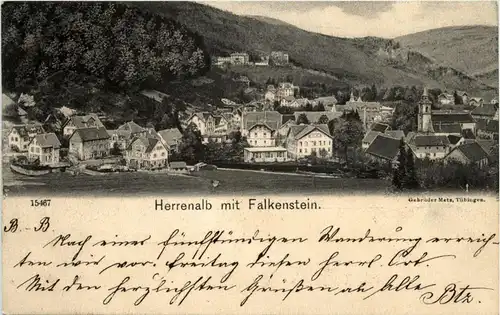 15467
Herrenalb mit Falkenstein.
Gebrüder Metz, Tübingen.
B. B.
Nach einer fünfstündigen Wanderung erreich-
ten wir vor. Freitag diesen herrl. Ort.
Mit den herzlichsten Grüßen an Alle
Btz.